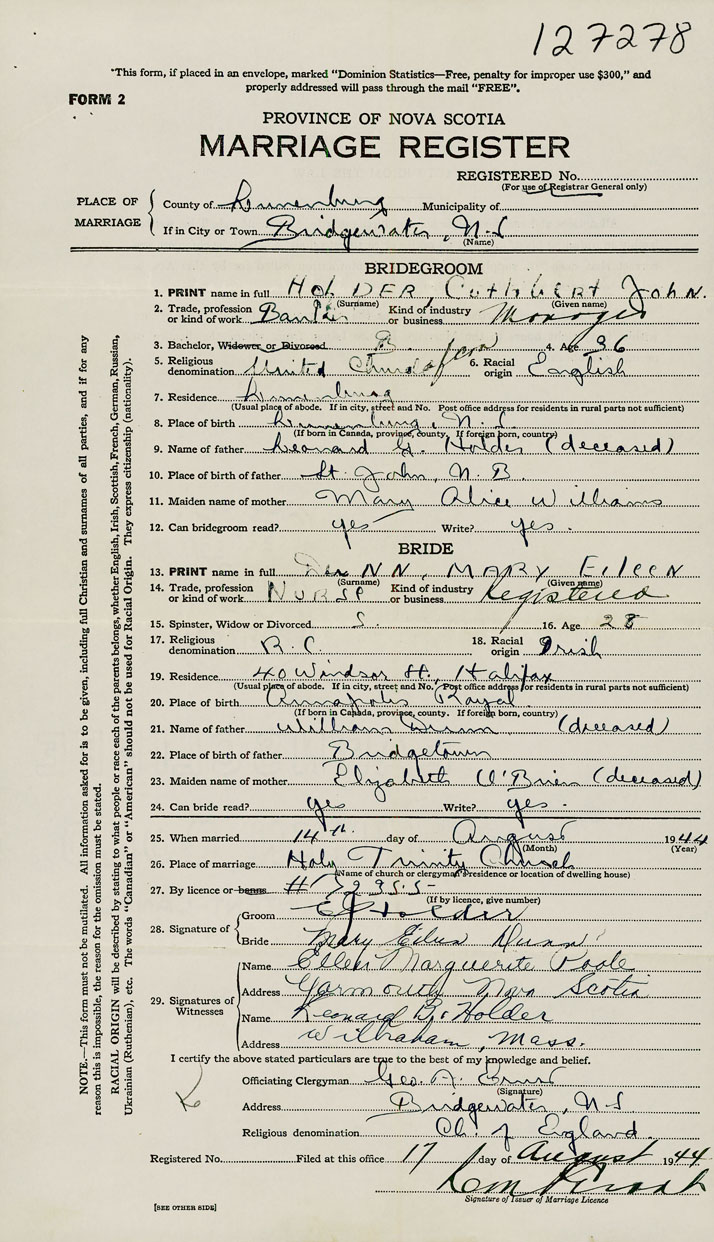 127278
"This form, if placed in an envelope, marked "Dominion Statistics—Free, penalty for improper use $300," and
properly addressed will pass through the mail "FREE".
FORM 2
PROVINCE OF NOVA SCOTIA
MARRIAGE REGISTER
REGISTERED No.
(For use of Registrar General only)
PLACE OF MARRIAGE
County of Lunenburg Municipality of
If in City or Town Bridgewater, N.S
(Name)
BRIDEGROOM
1. PRINT name in full HOLDER, Cuthbert John.
(Surname) (Given name)
2. Trade, profession or kind of work Banker Kind of industry or business Manager
3. Bachelor, Widower or Divorced B. 4. Age 36
5. Religious denomination United Church of Can 6. Racial origin English
7. Residence Lunenburg
(Usual place of abode. If in city, street and No. Post office address for residents in rural parts not sufficient)
8. Place of birth Lunenburg, N.S.
(If born in Canada, province, county. If foreign born, country)
9. Name of father Leonard G. Holder (deceased)
10. Place of birth of father St. John, N.B.
11. Maiden name of mother Mary Alice Williams
12. Can bridegroom read? yes Write? yes.
BRIDE
13. PRINT name in full NN, MARY EilEEN
(Surname) (Given name)
14. Trade, profession or kind of work NURSE Kind of industry or business Registered
15. Spinster, Widow or Divorced S. 16. Age 28
17. Religious denomination R.C. 18. Racial origin Irish
19. Residence 40 Windsor St., Halifax
(Usual place of abode. If in city, street and No. Post office address for residents in rural parts not sufficient)
20. Place of birth Annapolis Royal
(If born in Canada, province, county. If foreign born, country)
21. Name of father William Dunn (deceased)
22. Place of birth of father Bridgetown
23. Maiden name of mother Elizabeth O'Brien (deceased)
24. Can bride read? yes Write? yes.
25. When married 14th day of August 1944
(Month) (Year)
26. Place of marriage Holy Trinity Church
(Name of church or clergyman's residence or location of dwelling house)
27. By licence or banns #72955
(If by licence, give number)
28. Signature of
Groom Holder
Bride Mary Eileen Dunn
29. Signatures of Witnesses
Name Ellen Marguerite Poole
Address Yarmouth Nova Scotia
Name Leonard B. Holder
Address Wilbraham, Mass.
I certify the above stated particulars are true to the best of my knowledge and belief.
Officiating Clergyman Geo. A. Ernst
(Signature)
Address Bridgewater, N.S.
Religious denomination Ch. of England
Registered No. Filed at this office 17 day of August 1944
Signature of Issuer of Marriage Licence
[SEE OTHER SIDE]
NOTE.—This form must not be mutilated. All information asked for is to be given, including full Christian and surnames of all parties, and if for any
reason this is impossible, the reason for the omission must be stated.
RACIAL ORIGIN will be described by stating to what people or race each of the parents belongs, whether English, Irish, Scottish, French, German, Russian,
Ukrainian (Ruthenian), etc. The words "Canadian" or "American" should not be used for Racial Origin. They express citizenship (nationality).